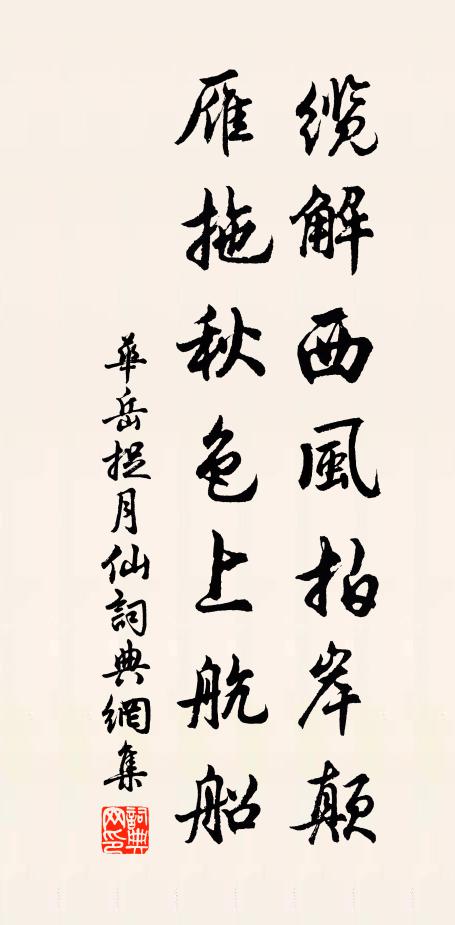 缆解西風拍岸顛
雁拖秋色上航船
華岳捉月仙詞典網集
詞典網印